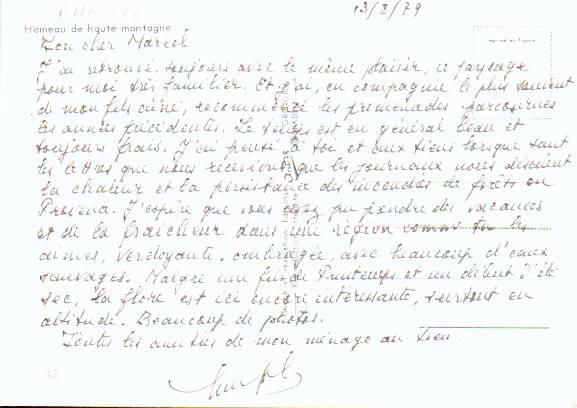 13/8/79
Hameau de haute montagne
imprimé en France
Mon cher Marcel
J'ai retrouvé, toujours avec le même plaisir, ce paysage
pour moi très familier. Et j'ai, en compagnie le plus souvent
de mon fils aîné, recommencé les promenades parcourues
les années précédentes. Le temps est en général beau et
toujours frais. J'ai pensé à toi et aux tiens lorsque tant
les lettres que nous recevions que les journaux nous disaient
la chaleur et la persistance des incendies de forêts en
Provence. J'espère que vous avez pu prendre des vacances
et de la fraîcheur dans une région comme tu les
aimes, verdoyante, ombragée, avec beaucoup d'eaux
sauvages. Malgré une fin de Printemps et un début d'été
sec, la flore est ici encore intéressante, surtout en
altitude. Beaucoup de photos.
Toutes les amitiés de mon ménage au tien.